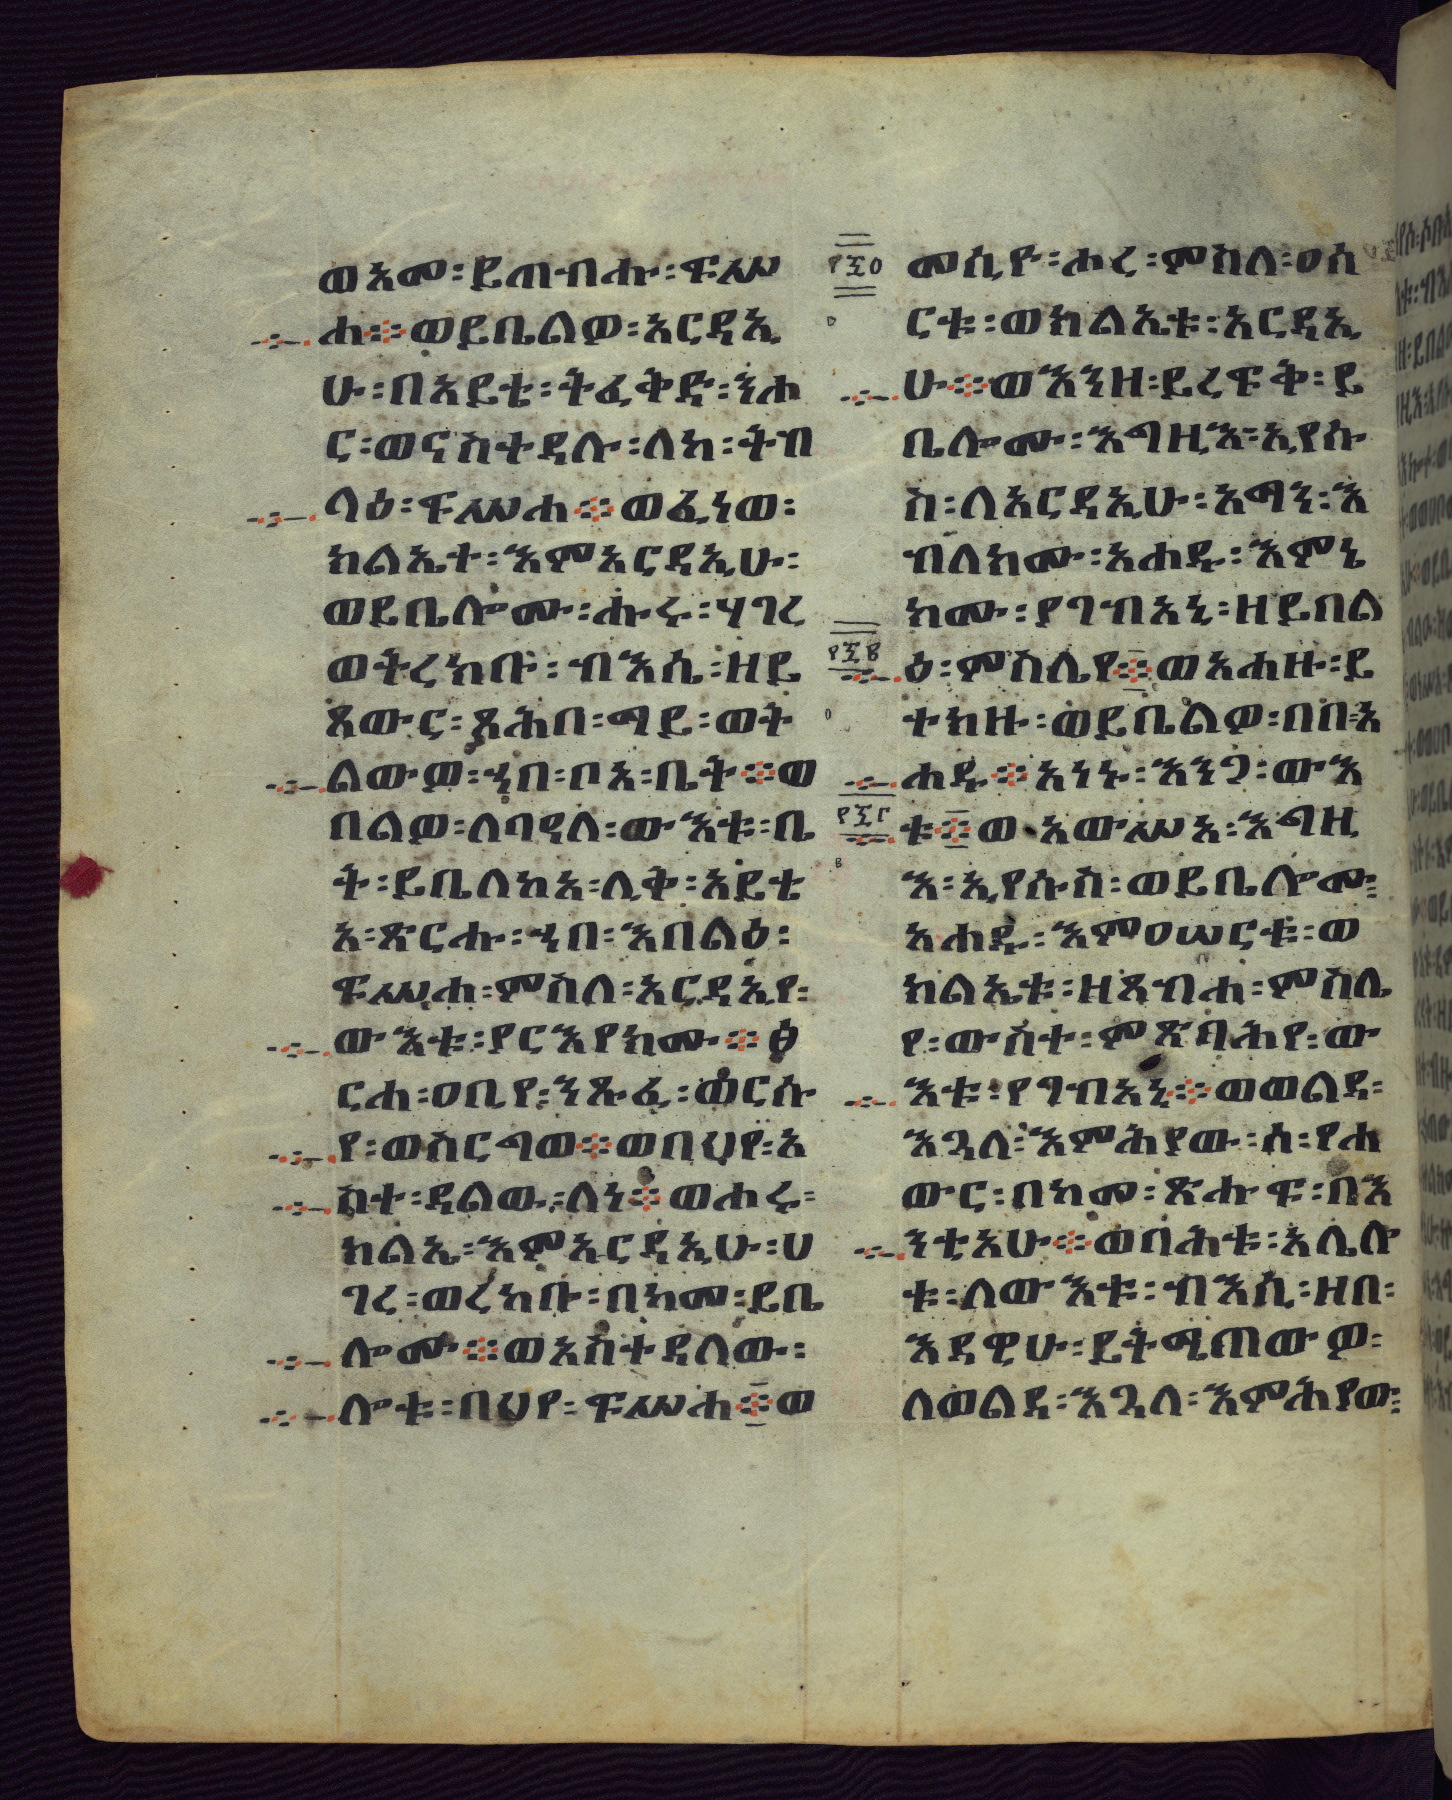 ወአመ፡ይጠብሑ፡ፍሥ
ሐ፨ወይቤልዎ፡አርዳኢ
ሁ፡በአይቴ፡ትፈቅድ፡ንሐ
ር፡ወናስተዳሉ፡ለከ፡ትብ
ላዕ፡ፍሥሐ፨ወፈነወ፡
ክልኤተ፡እምአርዳኢሁ፡
ወይቤሎሙ፡ሑሩ፡ሃገረ
ወትረክቡ፡ብእሴ፡ዘይ
ጸውር፡ጸሕበ፡ማይ፡ወት
ልውዎ፡ኀበ፡ቦአ፡ቤት፨ወ
በልዎ፡ለባዳለ፡ውእቱ፡ቤ
ት፡ይቤለከአ፡ሊቅ፡አይቴ
አ፡ጽርሑ፡ኀበ፡እበልዕ፡
ፍሥሐ፡ምስለ፡አርዳኢየ፡
ውእቱ፡ያርእየክሙ፨ፅ
ርሐ፡ዐቢየ፡ንጹፈ፡ወርሱ
የ፡ወስርግወ፨ወበህየ፡አ
ስተ፡ዳልው፡ለነ፨ወሐሩ፡
ክልኤ፡እምአርዳኢሁ፡ሀ
ገረ፡ወረከቡ፡በከመ፡ይቤ
ሎሙ፨ወአስተዳለው፡
ሎቱ፡በህየ፡ፍሥሐ፨ወ
፻፶፬
መሲዮ፡ሐረ፡ምስለ፡ዐስ
ርቱ፡ወክልኤቱ፡አርዳኢ
ሁ፨ወእንዘ፡ይረፍቅ፡ይ
ቤሎሙ፡እግዚእ፡ኢየሱ
ስ፡ለአርዳኢሁ፡አማን፡እ
ብለክሙ፡አሐዱ፡እምኔ
ክሙ፡ያገብአኒ፡ዘይበል
ዕ፡ምስሌየ፨ወአሐዙ፡ይ
ተክዙ፡ወይቤልዎ፡በበ፡አ
ሐዱ፨አነኑ፡እንጋ፡ውእ
ቱ፨ወ አውሥአ፡እግዚ
እ፡ኢየሱስ፡ወይቤሎሙ፡
አሐዱ፡እምዐሠርቱ፡ወ
ክልኤቱ፡ዘጸብሐ፡ምስሌ
የ፡ውስተ፡ምጽባሕየ፡ው
እቱ፡የገብአኒ፨ወወልደ፡
እጓለ፡እምሕያው፡ሰ፡የሐ
ውር፡በከመ፡ጽሑፍ፡በእ
ንቲአሁ፨ወባሕቱ፡አሌሎ
ቱ፡ለውእቱ፡ብእሲ፡ዘበ፡
እዳዊሁ፡ይትሜጠውዎ፡
ለወልደ፡እጓለ፡እምሕያው፡